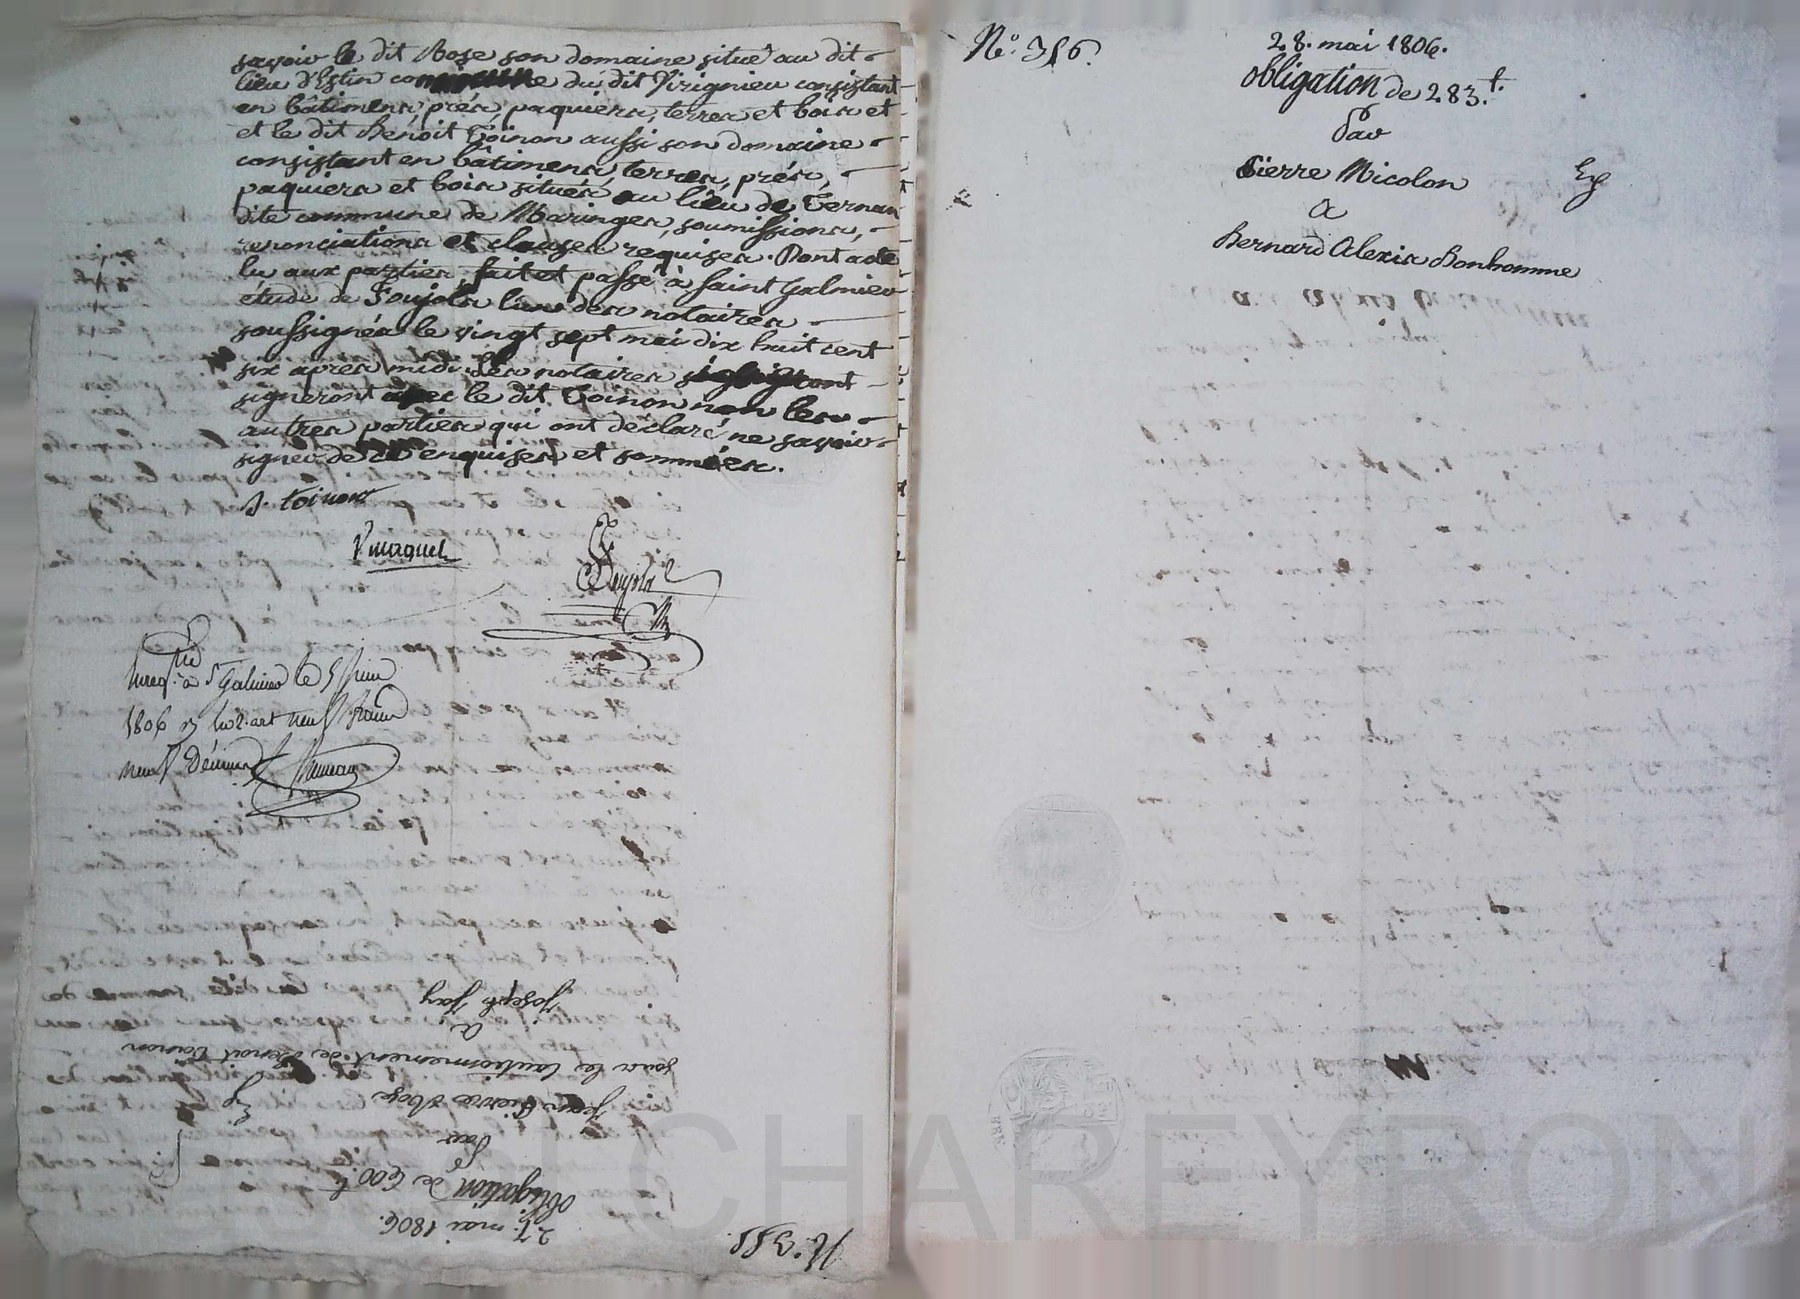 savoir le dit Roze son domaine situé au dit
lieu d'Estin du dit Virignieu consistant
en bâtimens, prés, paquiers, terres et bois et
et le dit Benoit Toinon aussi son domaine
consistant en bâtimens, terres, prés,
paquiers et bois situés au lieu de Ternan
dite commune de Maringes, soumissions,
renonciations et clauses requises. Dont acte
lu aux parties, fait et passé à Saint Galmier
étude de Foujols l'un des notaires
soussignés le vingt sept mai dix huit cent
six après midi. Les notaires
signeront avec le dit Toinon non les
autres parties qui ont déclaré ne savoir
signer de ce enquises et sommées.
B. toinon
Foujols
Enreg.ré à St Galmier le 5 juin
1806 art neuf
neuf Décimes
N.° 355
27. mai 1806.
Obligation de 600.t
Par
Jean Pierre Roze
sous le Cautionnement de Benoit Toinon
à
Joseph Jay
N.° 356.
28. mai 1806.
Obligation de 283.t
Par
Pierre Nicolon
à
Bernard Alexis Bonhomme
CHAREYRON